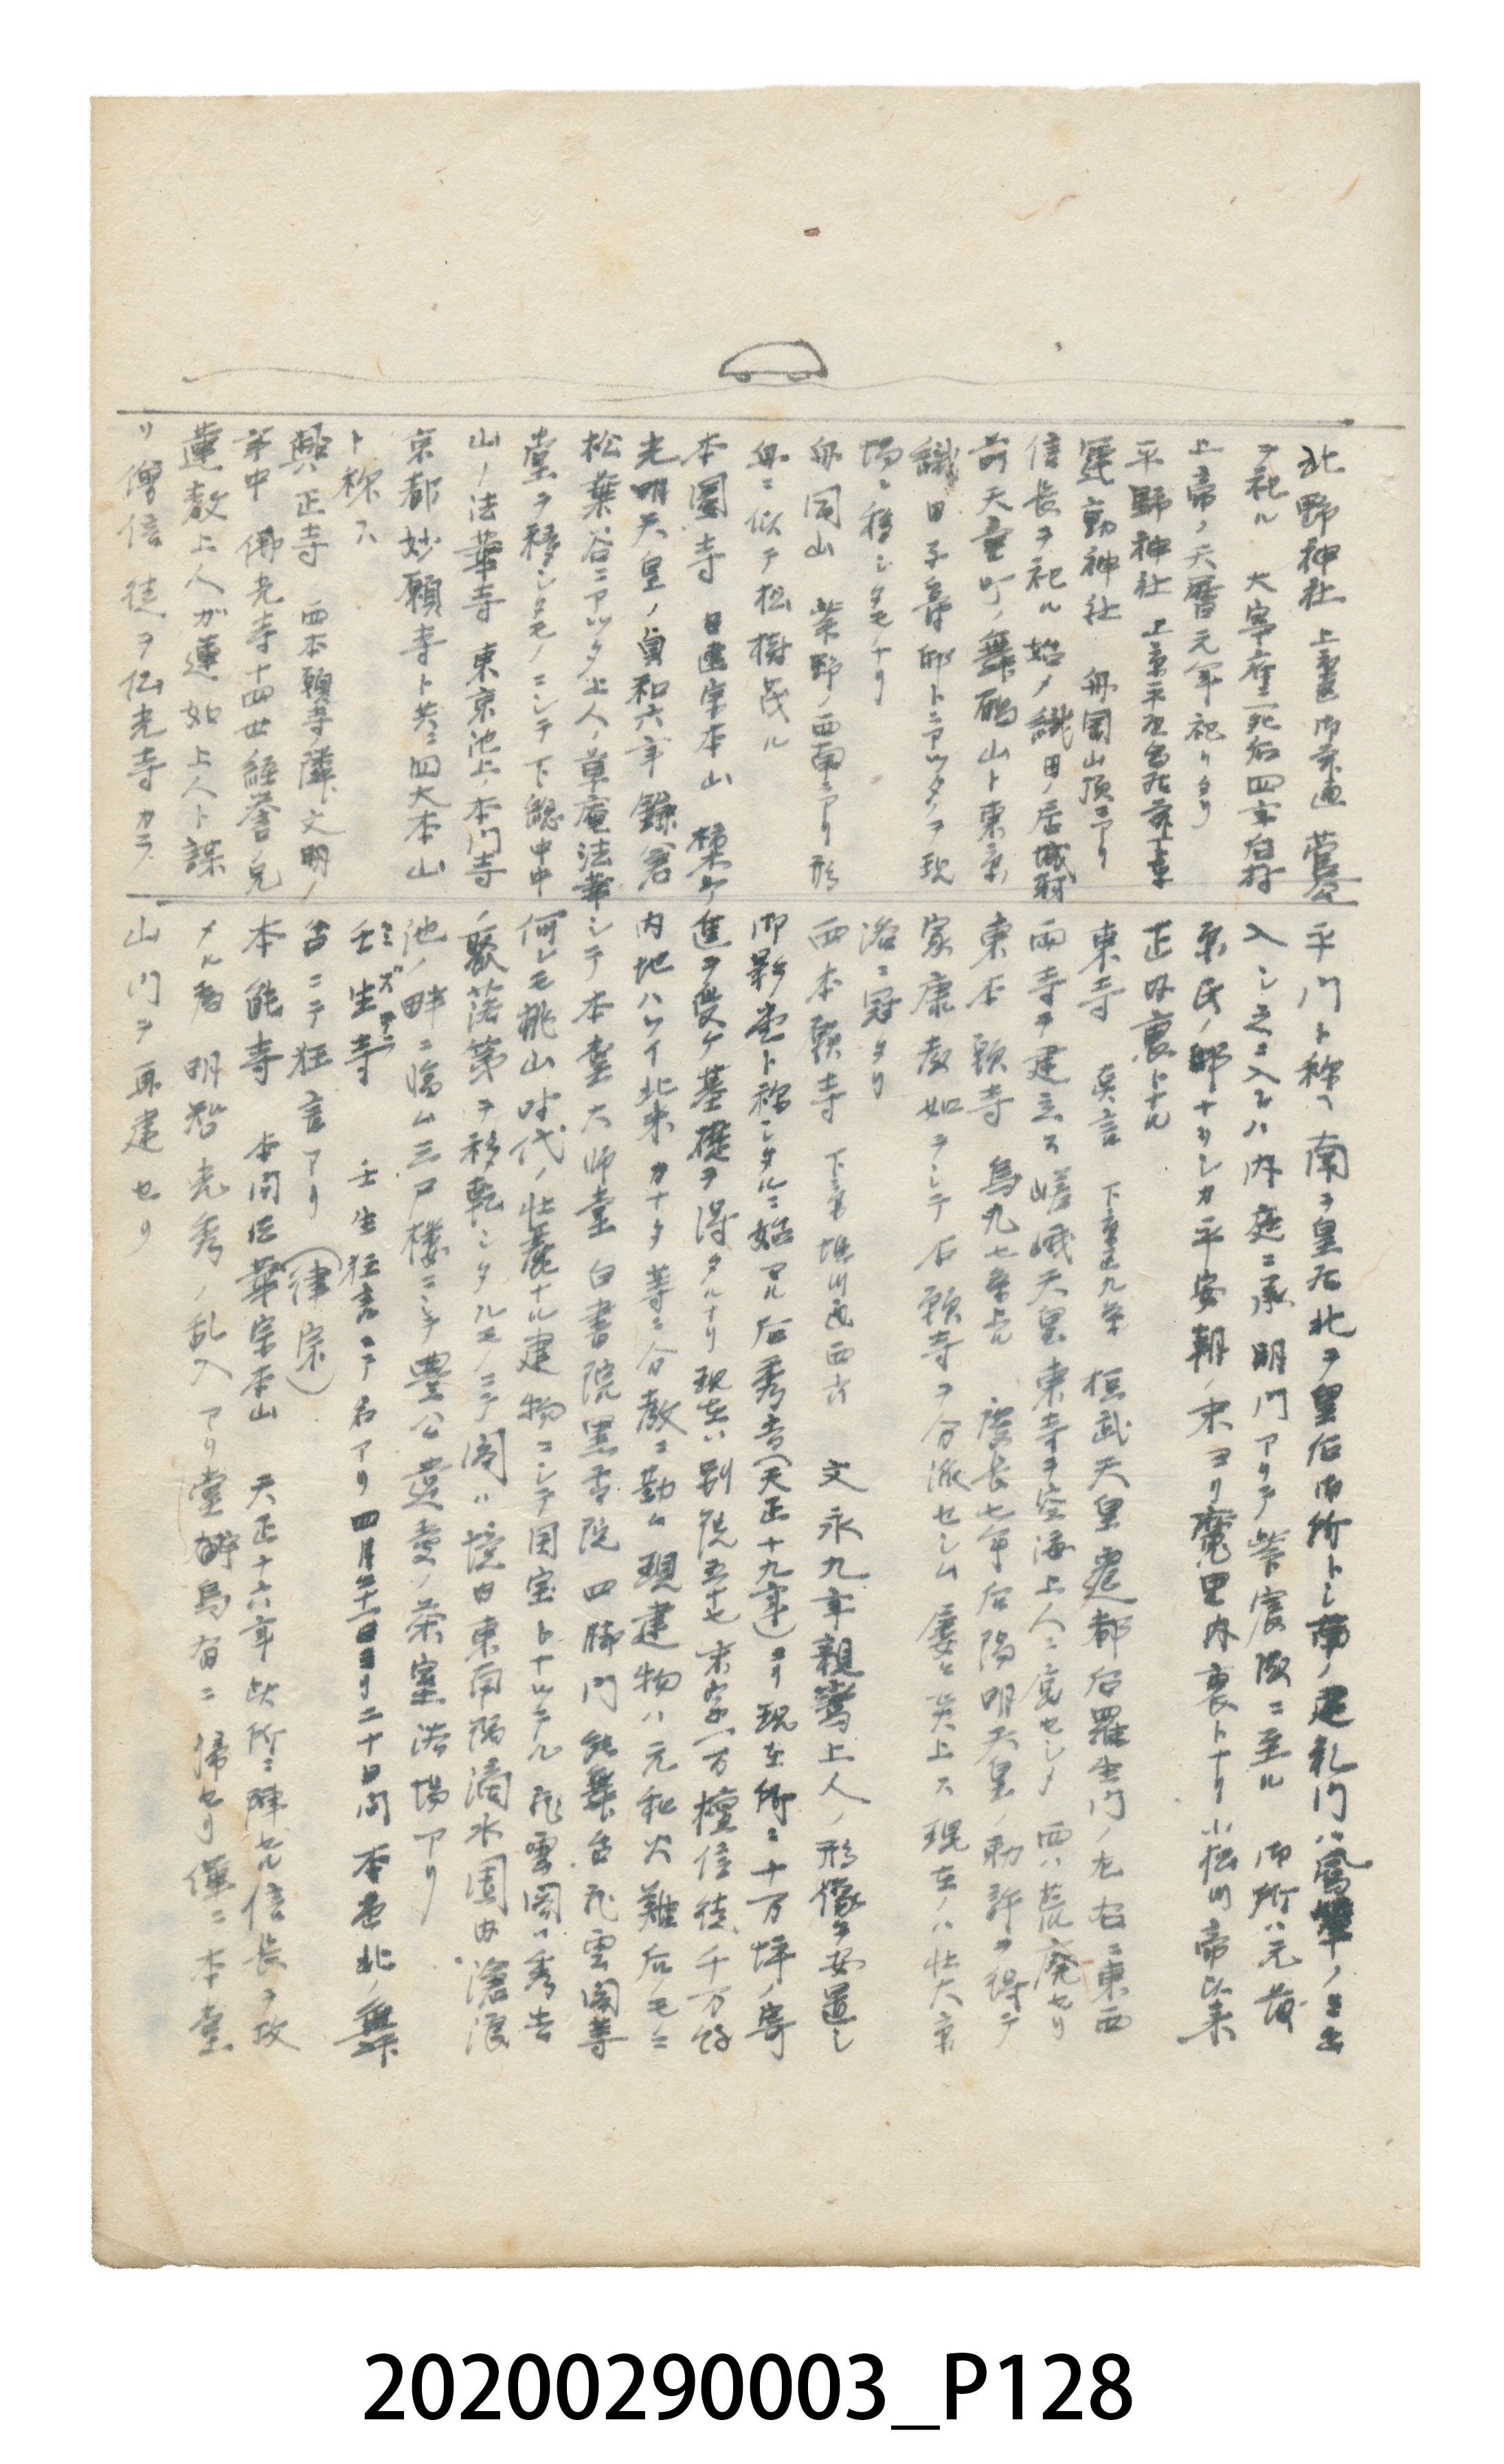 北野神社 上京区御前通 菅公
ヲ祀ル 大宰府ニ死后四年
上帝ノ天暦元年祀リタリ
平野神社 上京平野
建勲神社 舟岡山頂ニアリ
信長ヲ祀ル 始メ織田ノ居城羽
前天童町ノ舞鶴山ト東京
織田子爵邸トニアツタノヲ現
場ニ移シタモノナリ
舟岡山 紫野ノ西南ニアリ形
舟ニ似テ松樹茂ル
本圀寺 日蓮宗本山
光明天皇ノ貞和六年鎌倉
松葉谷ニアツタ上人ノ草庵法華
堂ヲ移シタモノニシテ下総中
山ノ法華寺 東京池上ノ本門寺
京都妙顕寺ト共ニ四大本山
ト称ス
興正寺 西本願寺隣ト文明ノ
年中 佛光寺十四世経誉ノ兄
蓮教上人ガ蓮如上人ト謀
リ僧信徒ヲ仏光寺カラ
平門ト称ヘ 南ヲ皇居北ヲ皇后御所トシ南ノ建礼門ハ鳳輦ノミ出
入シ之ニ入レハ内庭ニ承明門アリテ紫宸殿ニ至ル 御所ハ元藤
原氏ノ邸ナリシカ平安朝ノ末ヨリ里内裏トナリ小松帝以来
正内裏トナル
東寺 真言 下京区九条 桓武天皇遷都后羅生門ノ左右ニ東西
両寺ヲ建立ス嵯峨天皇東寺ヲ空海上人ニ賜セシメ 西ハ荒廃セリ
東本願寺 烏丸七条上ル 慶長七年后陽明天皇ノ勅許ヲ得テ
家康教如ヲシテ本願寺ヲ分派セシム 屡々炎上ス 現在ノハ壮大京
洛ニ冠タリ
西本願寺 下京堀川通西六 文永九年親鸞上人ノ形像ヲ安置シ
御影堂ト称シタルニ始マル后秀吉(天正十九年)ヨリ現在郷ニ十万坪ノ寄
進ヲ受ケ基礎ヲ得タルナリ 現在ハ別院五十七 末寺一万 檀信徒千万余
内地ハツイ北米カナタ等ニ分教ニ勤ム 現建物ハ元和火難后ノモニ
シテ本堂大師堂 白書院黒書院 四脚門 能舞台飛雲閣等
何レモ桃山時代ノ壮麗ナル建物ニシテ国宝トナツテル 飛雲閣ハ秀吉
ノ聚落第ヲ移転シタルモノニテ 閣ハ境内東南隅滴水園内滄浪
池ノ畔ニ臨ム三戸楼ニシテ豊公遺愛ノ茶室浴場アリ
壬生寺 壬生狂言ニテ名アリ 四月二十一日ヨリ二十日間 本堂北ノ舞
ミズデラ
台ニテ狂言アリ (律宗)
本能寺 本門法華宗本山 天正十六年此所ニ陣セル信長ヲ攻
メル為 明智光秀ノ乱入アリ堂宇烏有ニ帰セリ 僅ニ本堂
山門ヲ再建セリ
20200290003_P128